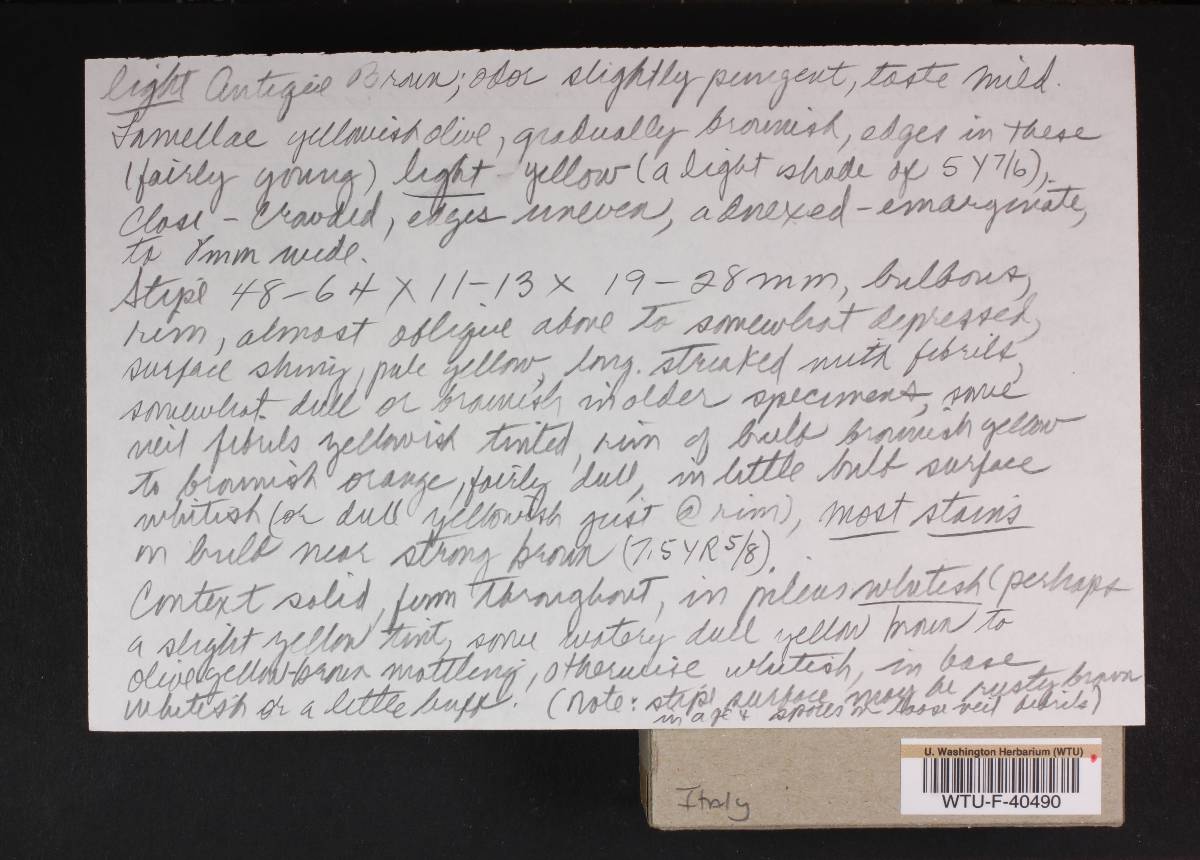 light Antique Brown; odor slightly pungent, taste mild.
Lamellae yellowish olive, gradually brownish, edges in these
(fairly young) light yellow (a light shade of 5Y7/6),
close - crowded, edges uneven, adnexed - emarginate,
to 8mm wide.
Stipe 48-64 X 11-13 x 19-28mm, bulbous,
rim, almost oblique above to somewhat depressed,
surface shiny, pale yellow, long. streaked with fibrils,
somewhat dull or brownish in older specimens, some
veil fibrils yellowish tinted, rim of bulb brownish yellow
to brownish orange, fairly dull, in little bulb surface
whitish (or dull yellowish just @ rim), most stains
on bulb near strong brown (7.5YR5/8).
Context solid, firm throughout, in pileus whitish (perhaps
a slight yellow tint, some watery dull yellow brown to
olive yellow-brown mottling, otherwise whitish, in base
whitish or a little buff. (Note: stipe surface may be rusty brown
in age & spores on loose veil fibrils)
U. Washington Herbarium (WTU)
WTU-F-40490
Italy